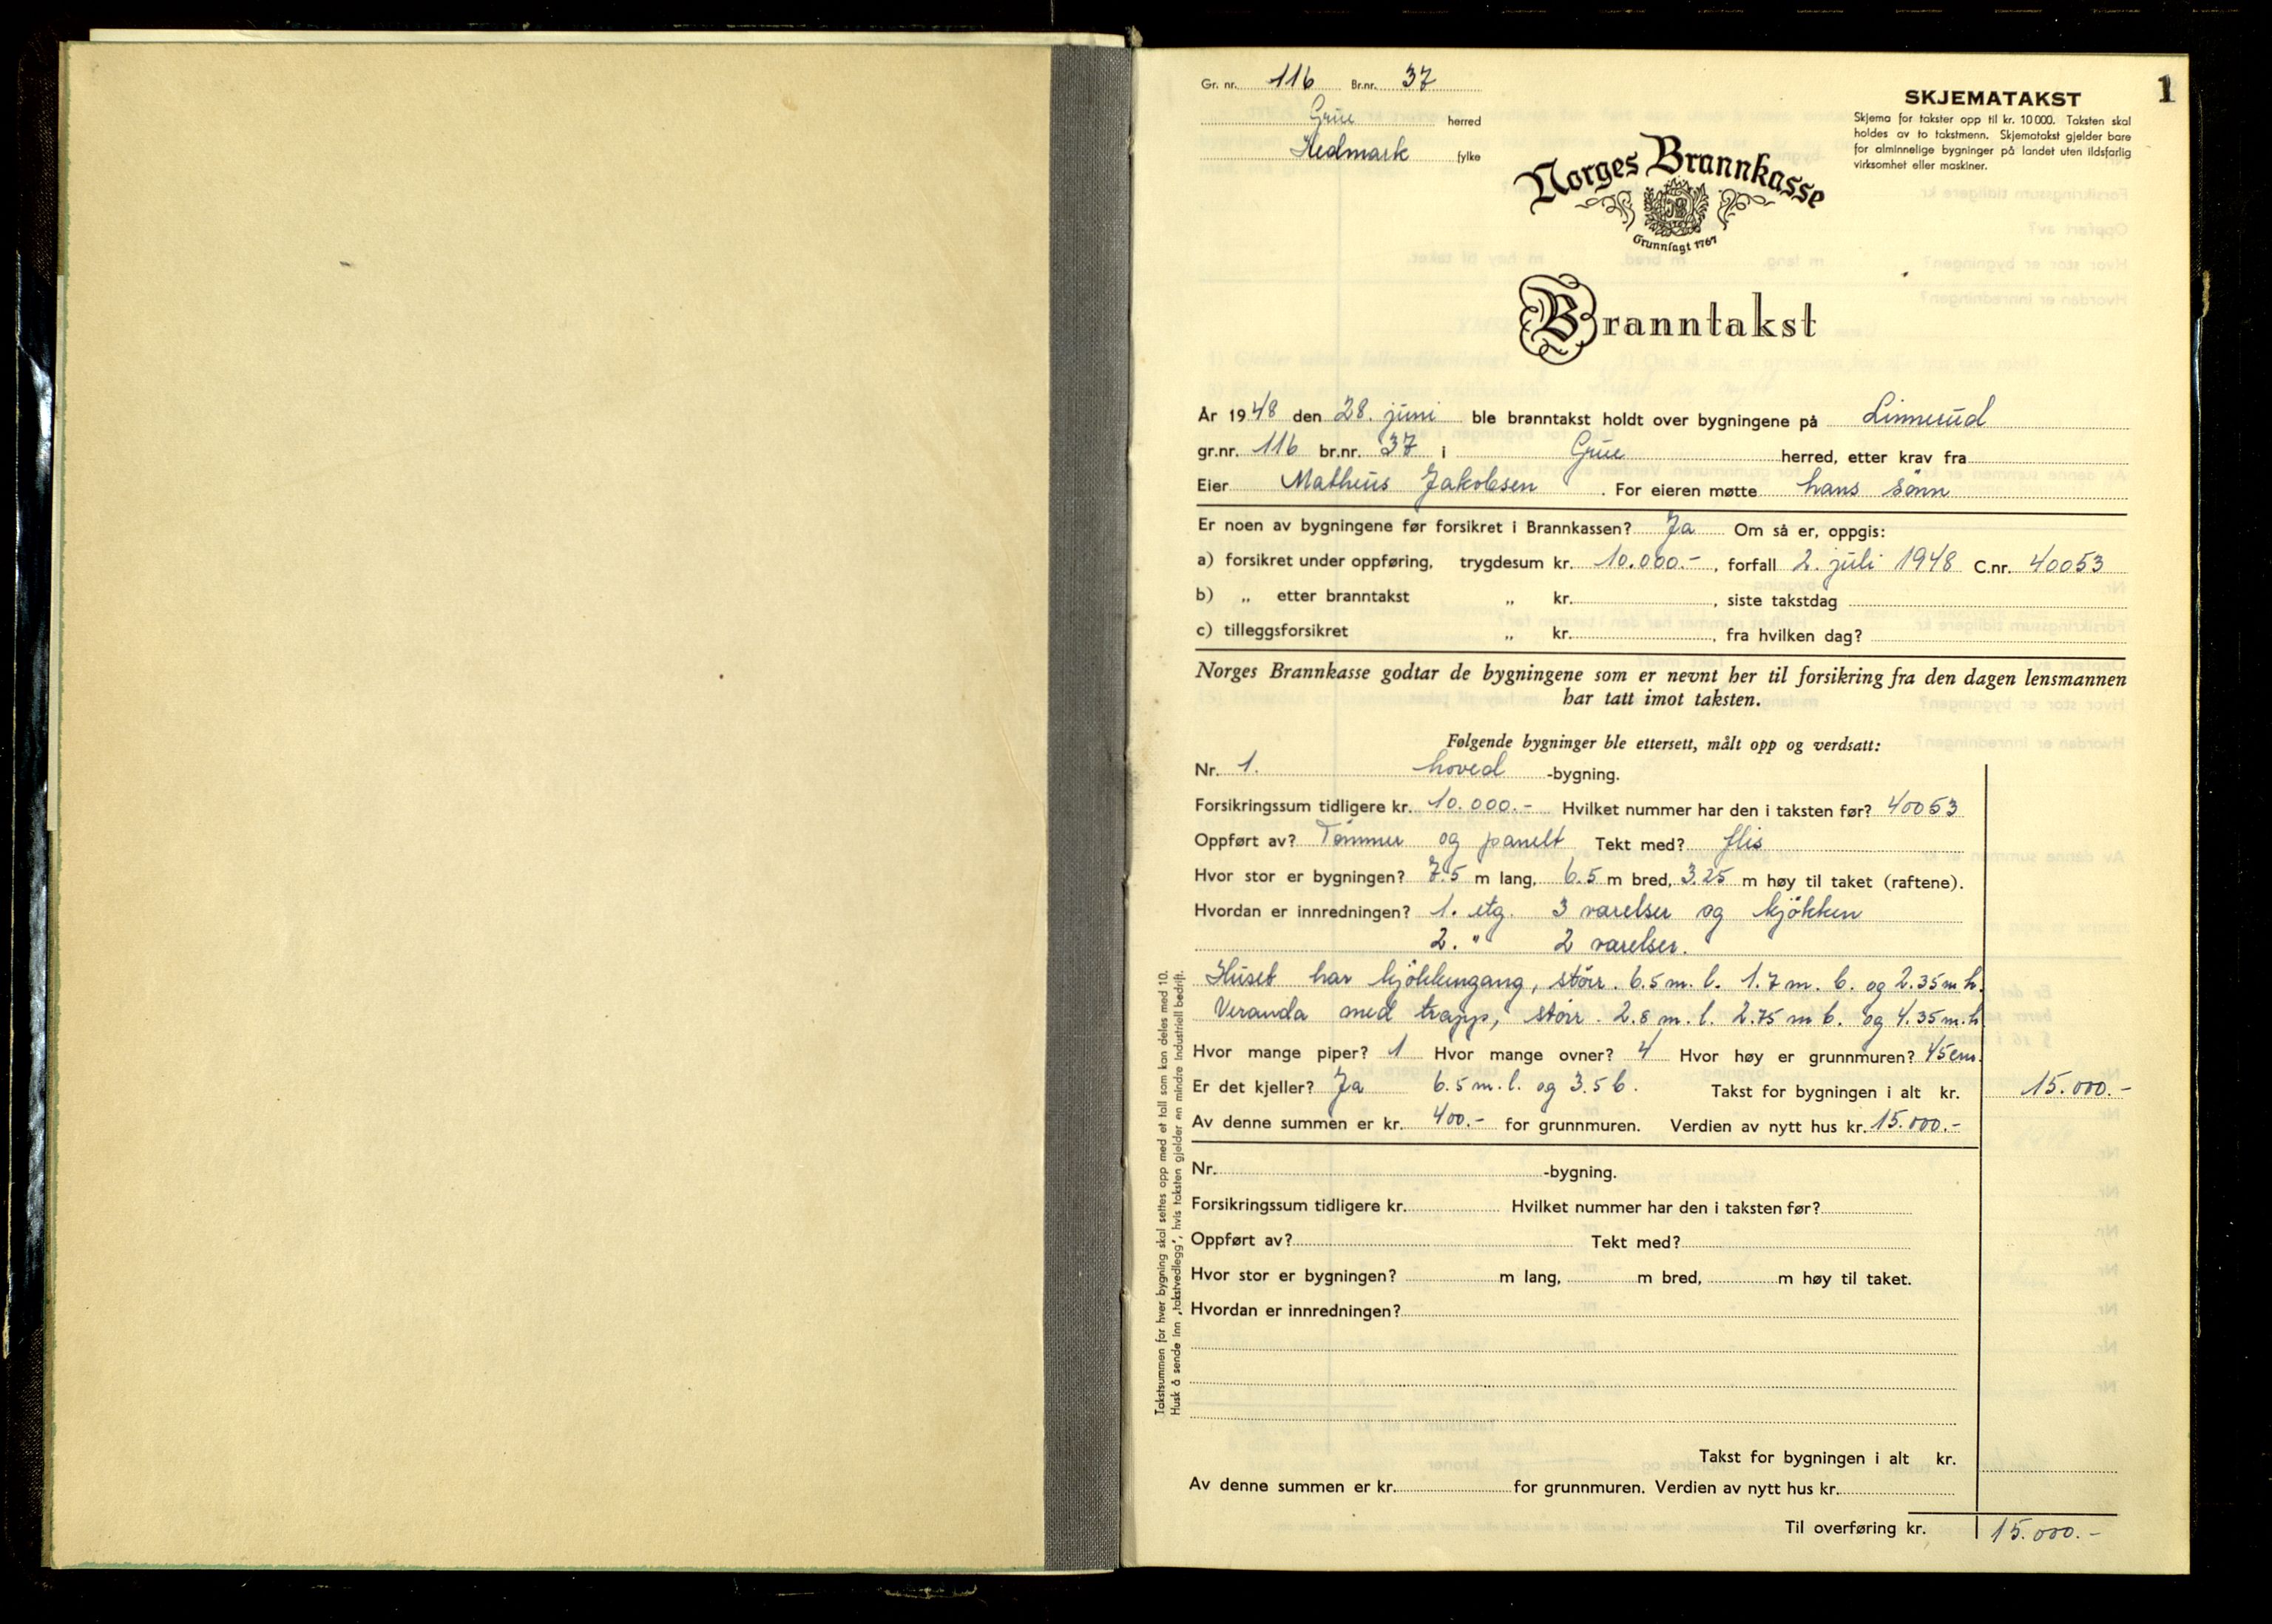 1
Gr. nr. 116 Br.nr. 37
Grue herred
Hedmark fylke
SKJEMATAKST
Skjema for takster opp til kr. 10 000. Taksten skal
holdes av to takstmenn. Skjematakst gjelder bare
for alminnelige bygninger på landet uten ildsfarlig
virksomhet eller maskiner.
Norges Brannkasse
Grunnlagt 1767
Branntakst
År 1948 den 28. juni ble branntakst holdt over bygningene på Linnerud
gr.nr. 116 br.nr. 37 i Grue herred, etter krav fra
Eier Matheus Jakobsen. For eieren møtte hans sønn
Er noen av bygningene før forsikret i Brannkassen? Ja Om så er, oppgis:
a) forsikret under oppføring, trygdesum kr. 10.000.-, forfall 2. juli 1948 C.nr. 40053
b) „ etter branntakst „ kr. , siste takstdag
c) tilleggsforsikret „ kr. , fra hvilken dag?
Norges Brannkasse godtar de bygningene som er nevnt her til forsikring fra den dagen lensmannen
har tatt imot taksten.
Følgende bygninger ble ettersett, målt opp og verdsatt:
Nr. 1. hoved -bygning.
Forsikringssum tidligere kr. 10.000.- Hvilket nummer har den i taksten før? 40053
Oppført av? Tömmer og panelt Tekt med? flis
Hvor stor er bygningen? 7.5 m lang, 6.5 m bred, 3.25 m høy til taket (raftene).
Hvordan er innredningen? 1. etg. 3 varelser og kjökken
2. " 2 varelser.
Huset har kjökkengang, störr. 6.5 m. l. 1.7 m. b. og 2.35 m h.
Veranda med trapp, störr. 2.8 m. l. 2.75 m b. og 4.35 m. h
Hvor mange piper? 1 Hvor mange ovner? 4 Hvor høy er grunnmuren? 45 cm.
Er det kjeller? Ja 6.5 m. l. og 3.5 b. Takst for bygningen i alt kr. 15.000.-
Av denne summen er kr. 400.- for grunnmuren. Verdien av nytt hus kr. 15.000.-
Nr. -bygning.
Forsikringssum tidligere kr. Hvilket nummer har den i taksten før?
Oppført av? Tekt med?
Hvor stor er bygningen? m lang, m bred, m høy til taket.
Hvordan er innredningen?
Takst for bygningen i alt kr.
Av denne summen er kr. for grunnmuren. Verdien av nytt hus kr.
Til overføring kr. 15.000.-
Takstsummen for hver bygning skal settes opp med et tall som kan deles med 10.
Husk å sende inn „takstvedlegg", hvis taksten gjelder en mindre industriell bedrift.